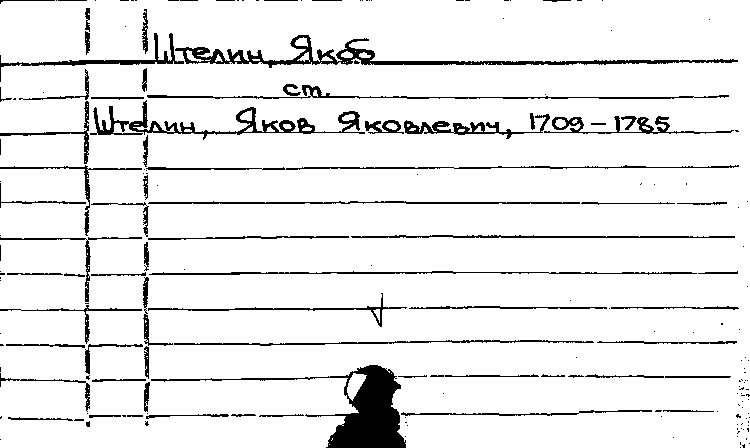 Штелин, Якоб
ст.
Штелин, Яков Яковлевич, 1709-1785